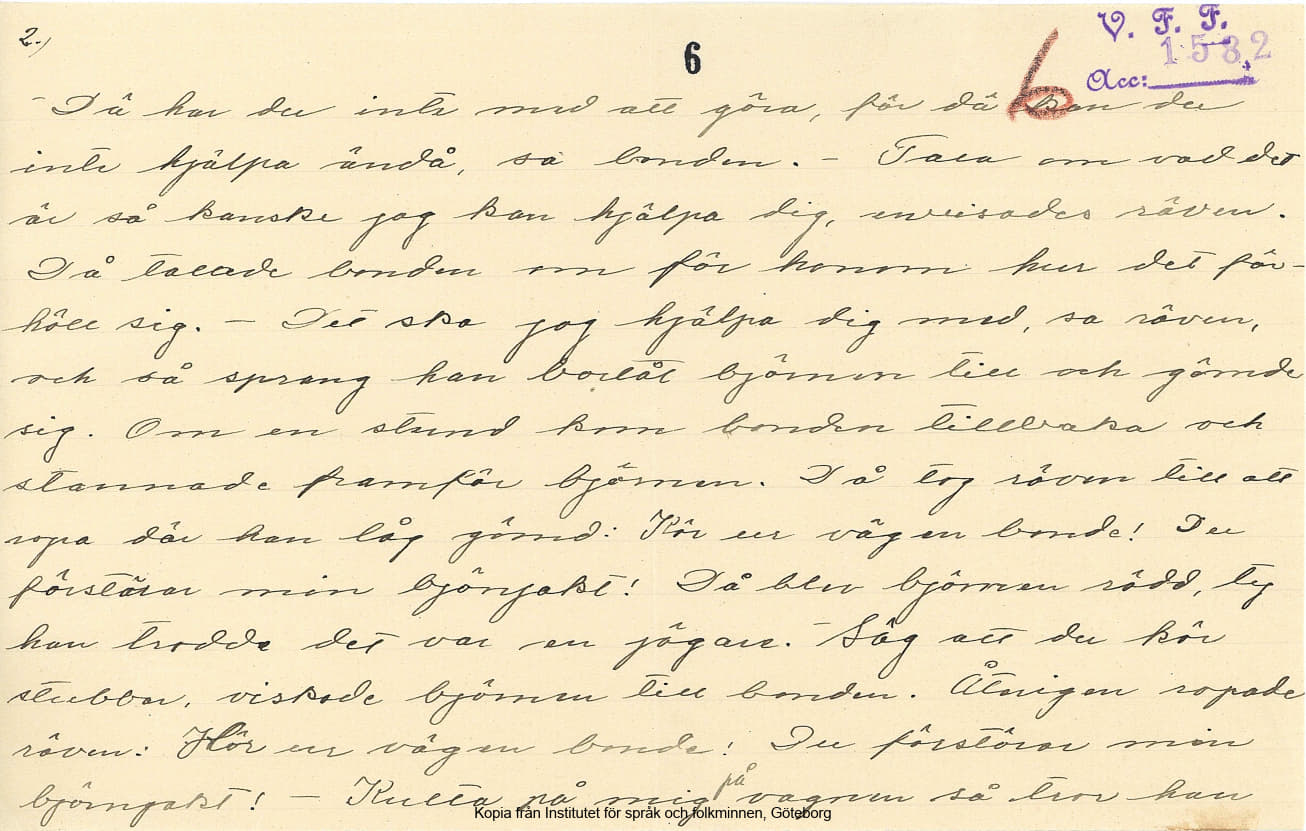 2.)
6
V. F. F.
1532
Acc:
6
– Dä har du inte med att göra, för dä kan du
inte hjälpa ändå, sa bonden. – Tala om vad det
är så kanske jag kan hjälpa dig, envisades räven.
Då talade bonden om för honom hur det för-
höll sig. – Det ska jag hjälpa dig med, sa räven,
och så sprang han bortåt björnen till och gömde
sig. Om en stund kom bonden tillbaka och
stannade framför björnen. Då tog räven till att
ropa där han låg gömd: Kör ur vägen bonde! Du
förstörar min björnjakt! Då blev björnen rädd, ty
han trodde det var en jägare. – Säg att du kör
stubbar, viskade björnen till bonden. Återigen ropade
räven: Kör ur vägen bonde! Du förstörar min
björnjakt! – Kulta på mig på vagnen så tror han
Kopia från Institutet för språk och folkminnen, Göteborg